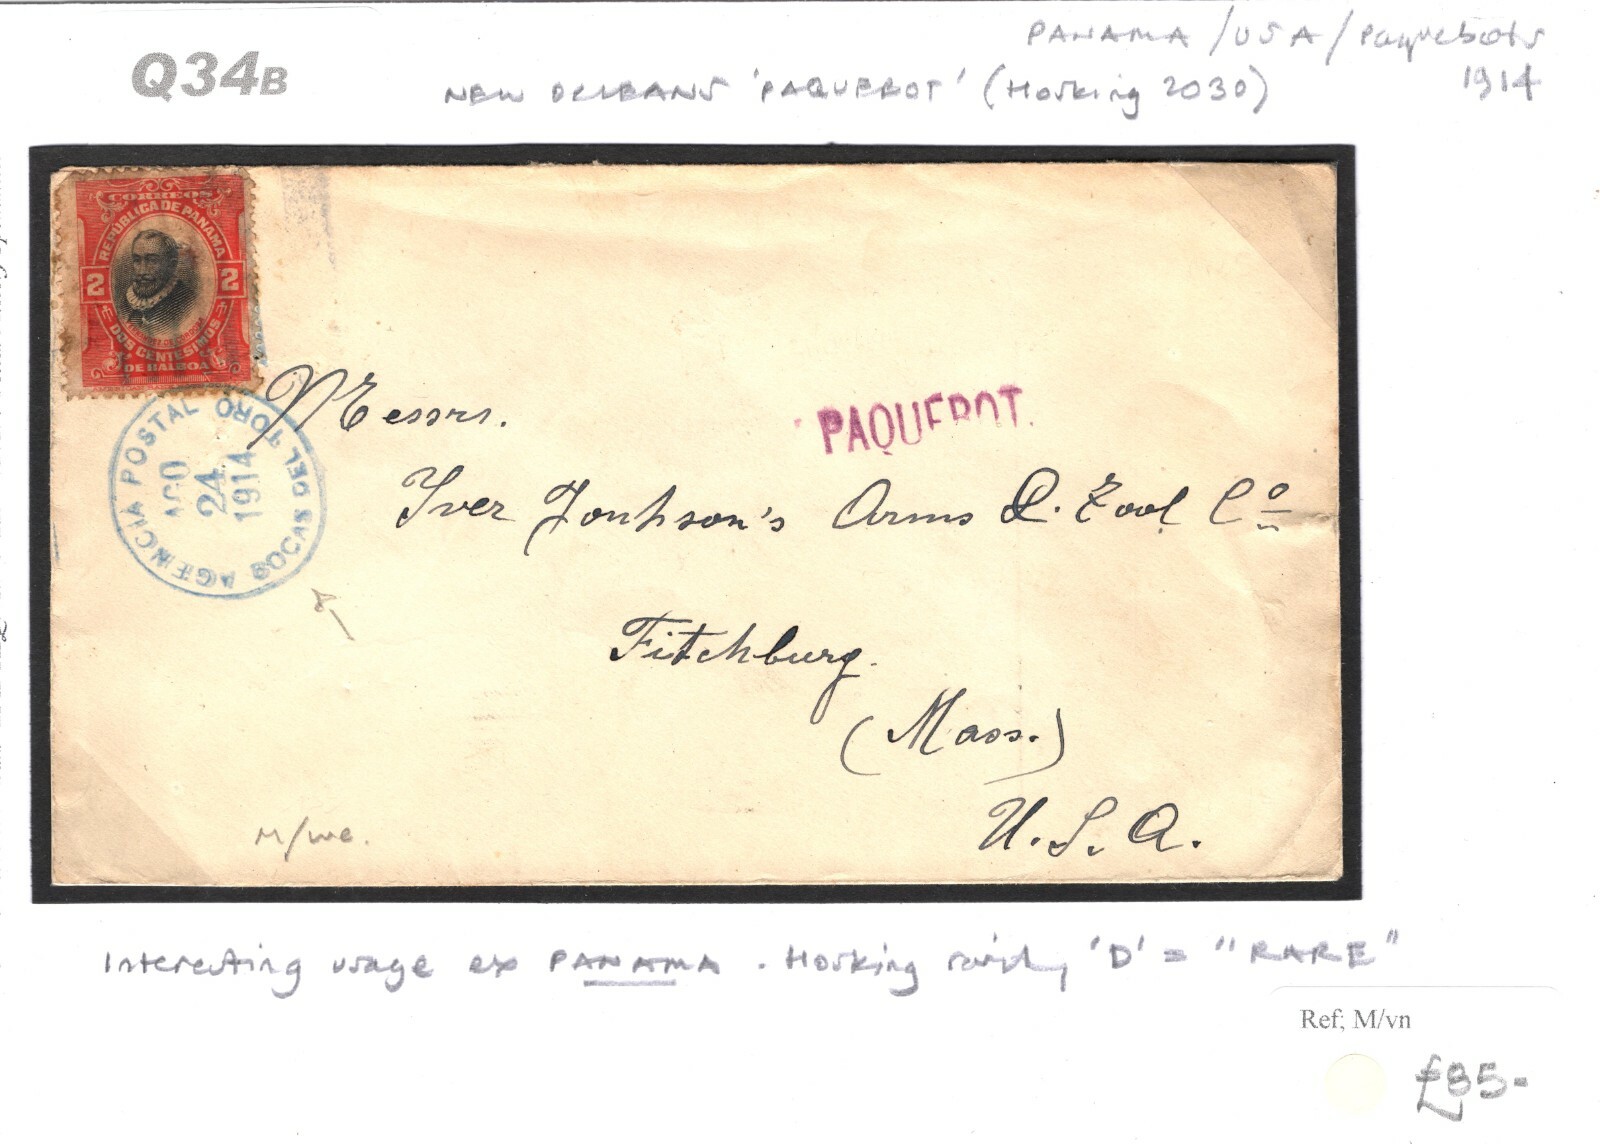 Q34B
PANAMA / USA / Paquebots
1914
NEW ORLEANS 'PAQUEBOT' (Hosking 2030)
CORREOS
REPUBLICA DE PANAMA
2 2
DOS CENTESIMOS
DE BALBOA
AGENCIA POSTAL BOCAS DEL TORO
AGO
24
1914
PAQUEBOT.
Messrs.
Iver Jonhson's Arms & Tool Co
Fitchburg.
(Mass.)
U.S.A.
Interesting usage ex PANAMA. Hosking rarity 'D' = "RARE"
Ref; M/vn
£85-